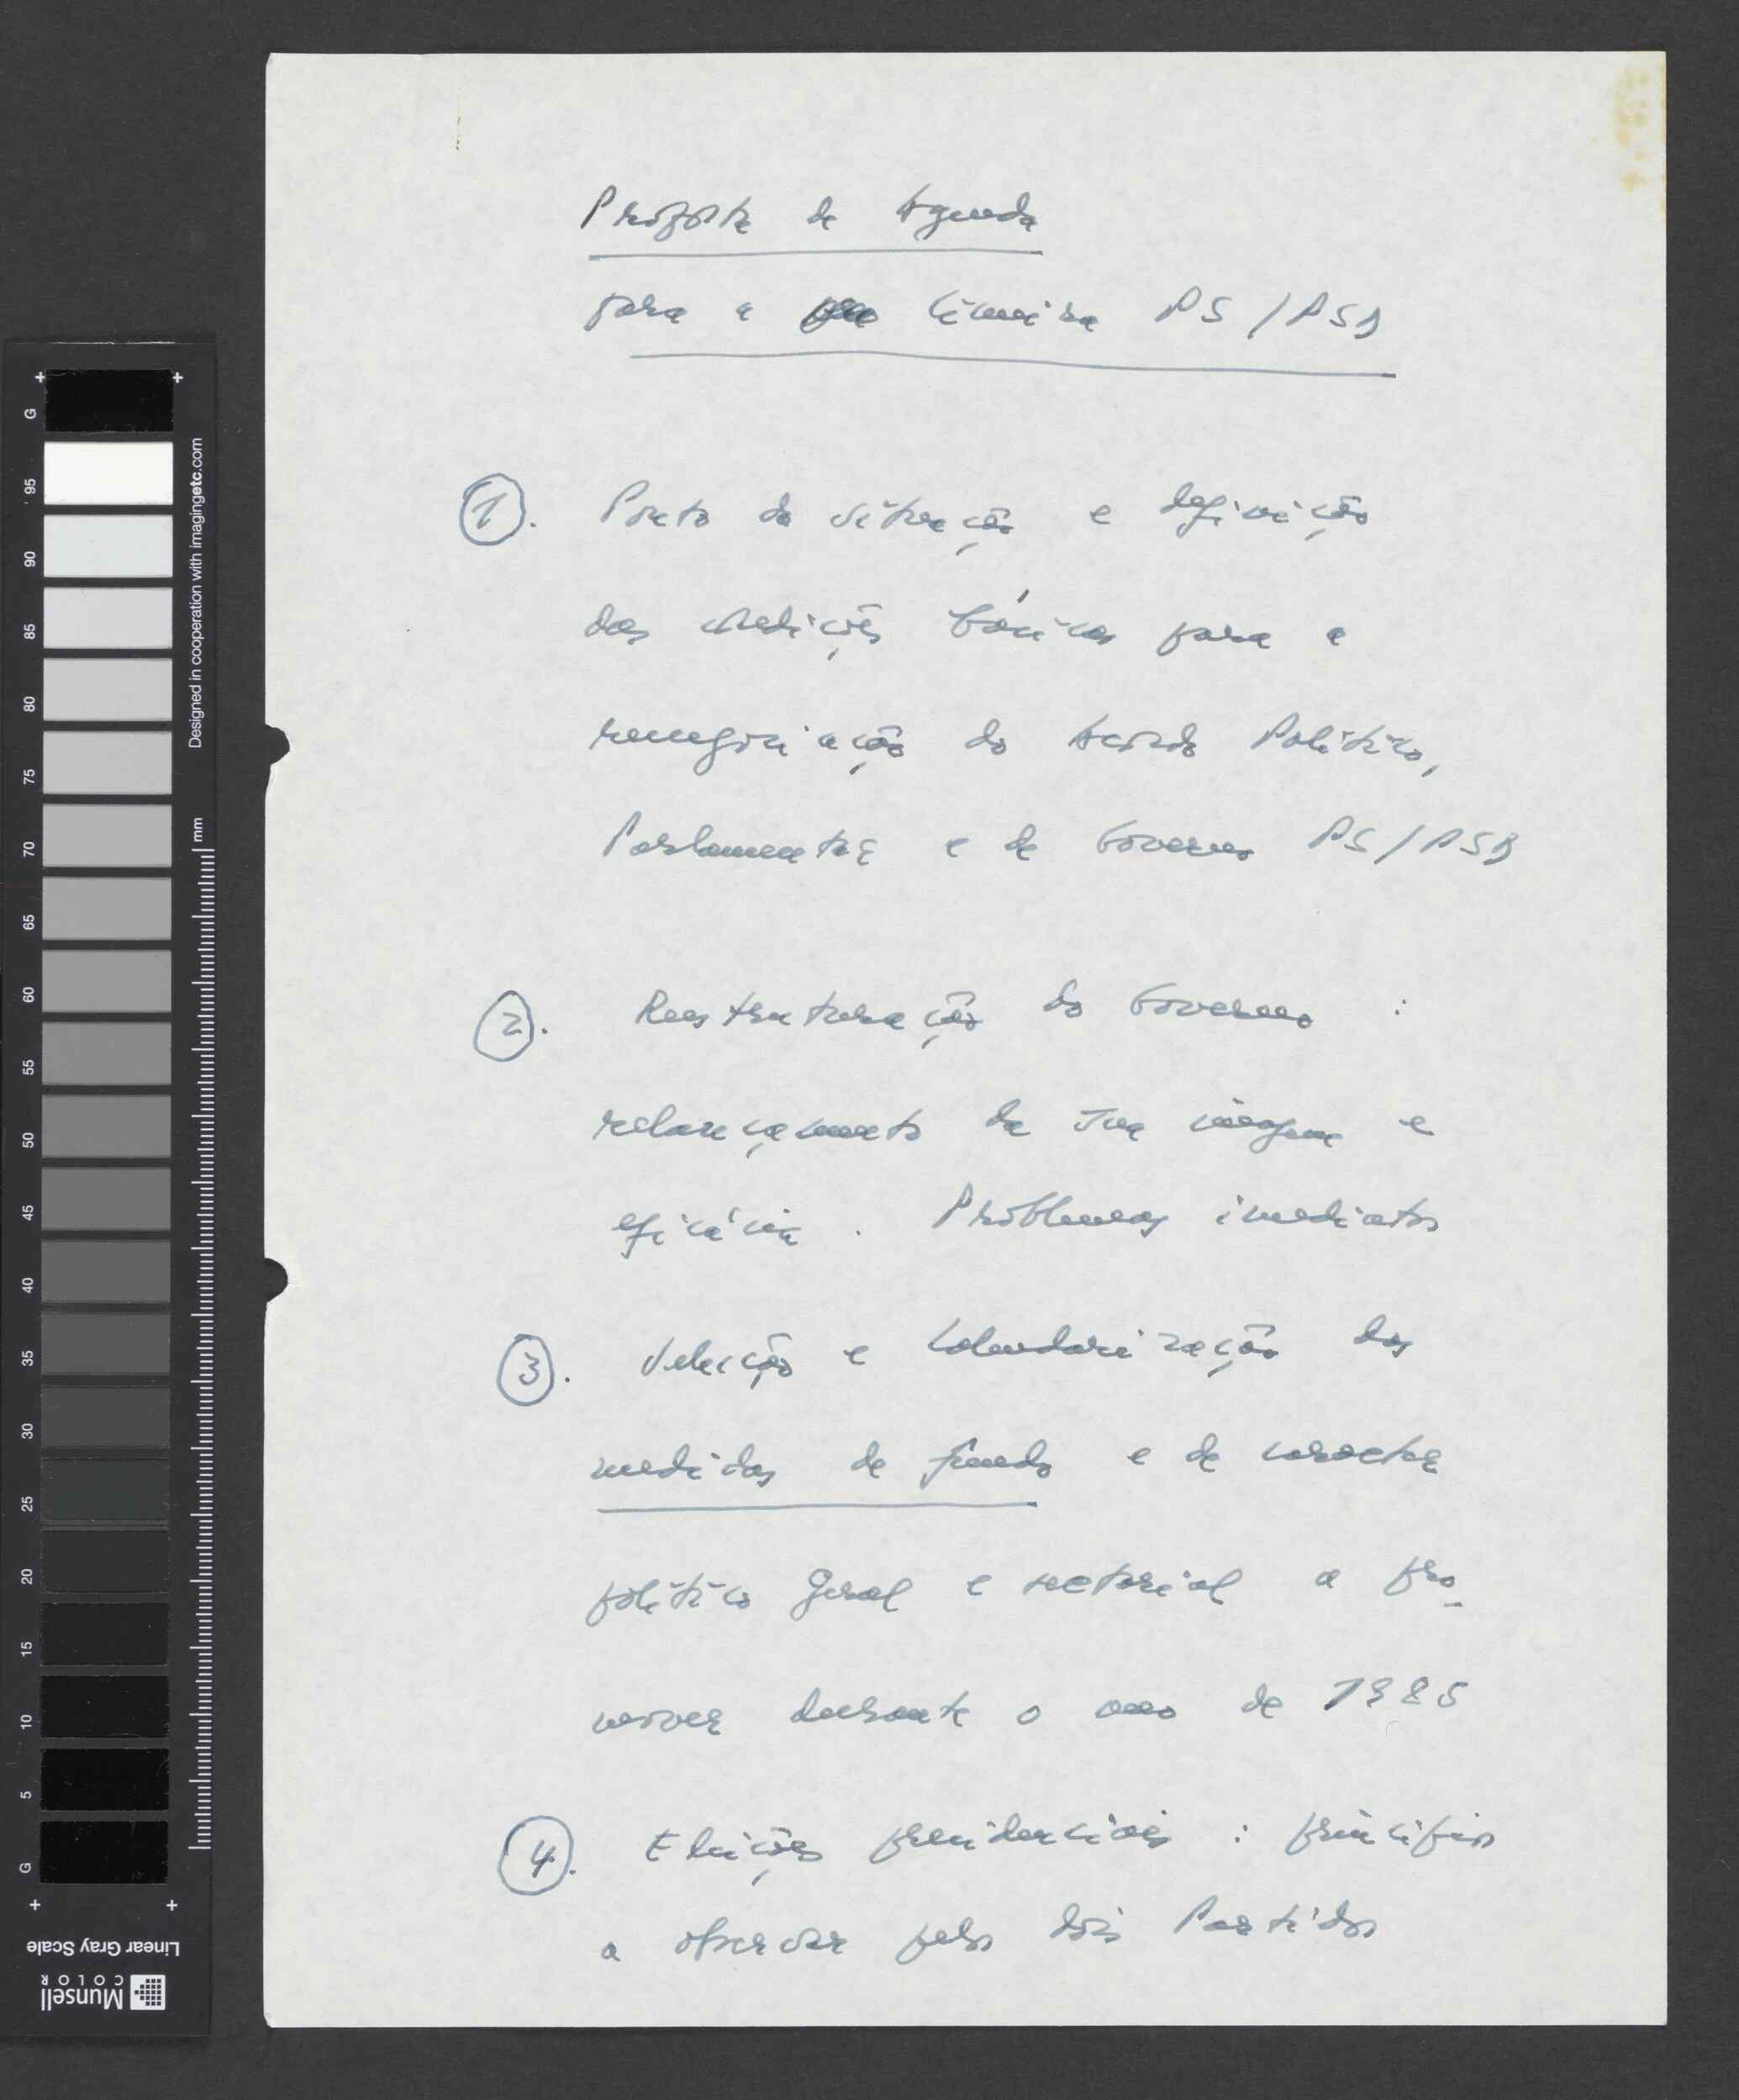 Proposta de Agenda
para a Cimeira PS/PSD
1. Ponto da situação e definição
das condições básicas para a
renegociação do Acordo Político,
Parlamentar e de Governo PS/PSD
2. Reestruturação do Governo :
relançamento da sua imagem e
eficácia . Problemas imediatos
3. Selecção e Calendarização das
medidas de fundo e de caracter
político geral e sectorial a pro-
mover durante o ano de 1985
4. Eleições presidenciais : princípios
a observar pelos dois Partidos
G
95
90
85
80
75
70
65
60
55
50
45
40
35
30
25
20
15
10
5
G
mm
Designed in cooperation with imagingetc.com
Munsell
COLOR
Linear Gray Scale